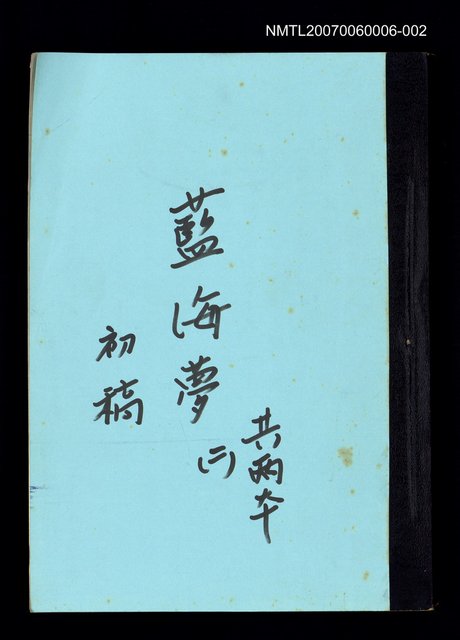 NMTL20070060006-002
共兩本
藍海夢
(二)
初稿